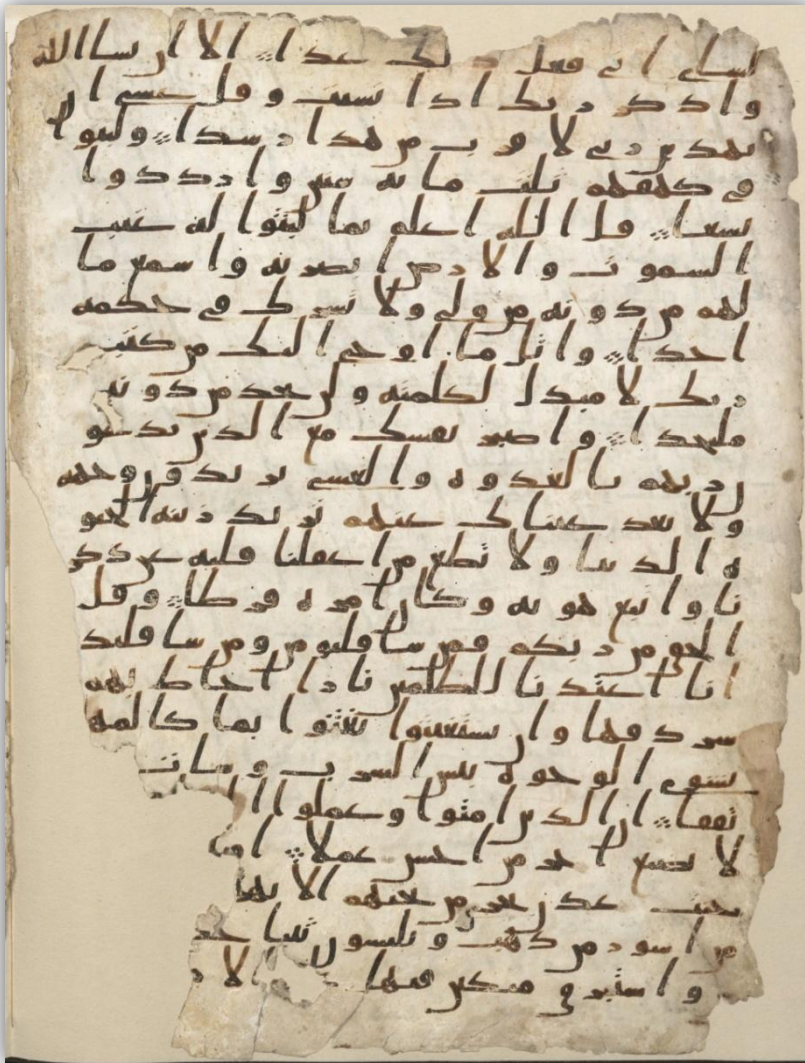 لشاى انى فعل ذلك غدا الا ان يشا الله
واذكر ربك اذا نسيت وقل عسى ان
يهدين ربى لاقرب من هذا رشدا ولبثوا
فى كهفهم ثلث مائة سنين وازددوا
تسعا قل الله اعلم بما لبثوا له غيب
السموت والارض ابصر به واسمع ما
لهم من دونه من ولى ولا يشرك فى حكمه
احدا واتل ما اوحى اليك من كتب
ربك لا مبدل لكلمته ولن تجد من دونه
ملتحدا واصبر نفسك مع الذين يدعو
ن ربهم بالغدوة والعشى يريدون وجهه
ولا تعد عيناك عنهم تريد زينة الحيو
ة الدنيا ولا تطع من اغفلنا قلبه عن ذكر
نا واتبع هويه وكان امره فرطا وقل
الحق من ربكم فمن شا فليومن ومن شا فليك
انا اعتدنا للظلمين نارا احاط بهم
سردقها وان يستغيثوا يغثوا بما كالمه
يشوى الوجوه بئس الشرب وسات
تفقا ان الذين امنوا وعملوا ال
لا نضيع اجر من احسن عملا او
جنت عدن تجرى من تحتهم الانها
من اسور من ذهب ويلبسون ثيابا خ
واستبرق متكين فيها الار